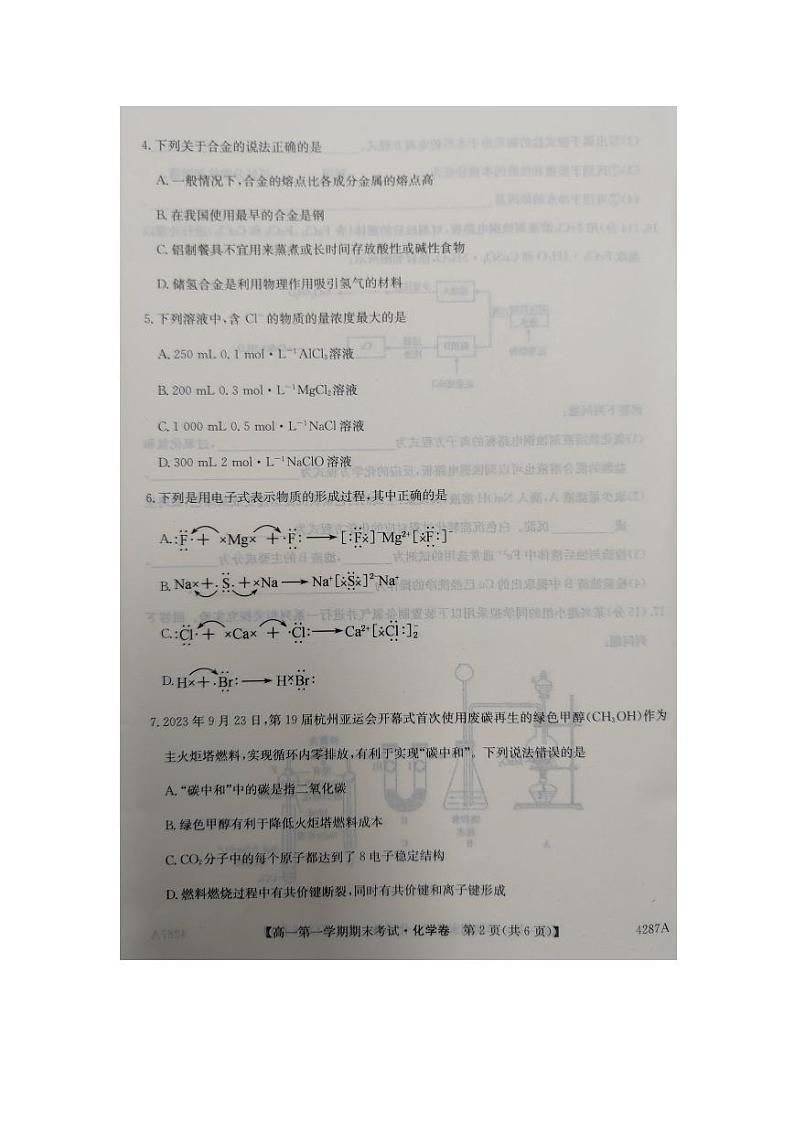 4.下列关于合金的说法正确的是
A.一般情况下,合金的熔点比各成分金属的熔点高
B.在我国使用最早的合金是钢
C.铝制餐具不宜用来蒸煮或长时间存放酸性或碱性食物
D.储氢合金是利用物理作用吸引氢气的材料
5.下列溶液中,含 Cl⁻ 的物质的量浓度最大的是
A.250 mL 0.1 mol·L⁻¹AlCl₃溶液
B.200 mL 0.3 mol·L⁻¹MgCl₂溶液
C.1 000 mL 0.5 mol·L⁻¹NaCl 溶液
D.300 mL 2 mol·L⁻¹NaClO 溶液
6.下列是用电子式表示物质的形成过程,其中正确的是
A.:F· + ×Mg× + ·F: → [:F×]⁻Mg²⁺[×F:]⁻
B.Na×+·S·+×Na → Na⁺[×S×]²⁻Na⁺
C.:Cl· + ×Ca× + ·Cl: → Ca²⁺[×Cl:]₂⁻
D.H×+·Br: → H×Br:
7.2023 年 9 月 23 日,第 19 届杭州亚运会开幕式首次使用废碳再生的绿色甲醇(CH₃OH)作为
主火炬塔燃料,实现循环内零排放,有利于实现“碳中和”。下列说法错误的是
A.“碳中和”中的碳是指二氧化碳
B.绿色甲醇有利于降低火炬塔燃料成本
C.CO₂分子中的每个原子都达到了 8 电子稳定结构
D.燃料燃烧过程中有共价键断裂,同时有共价键和离子键形成
【高一第一学期期末考试·化学卷 第 2 页(共 6 页)】 4287A